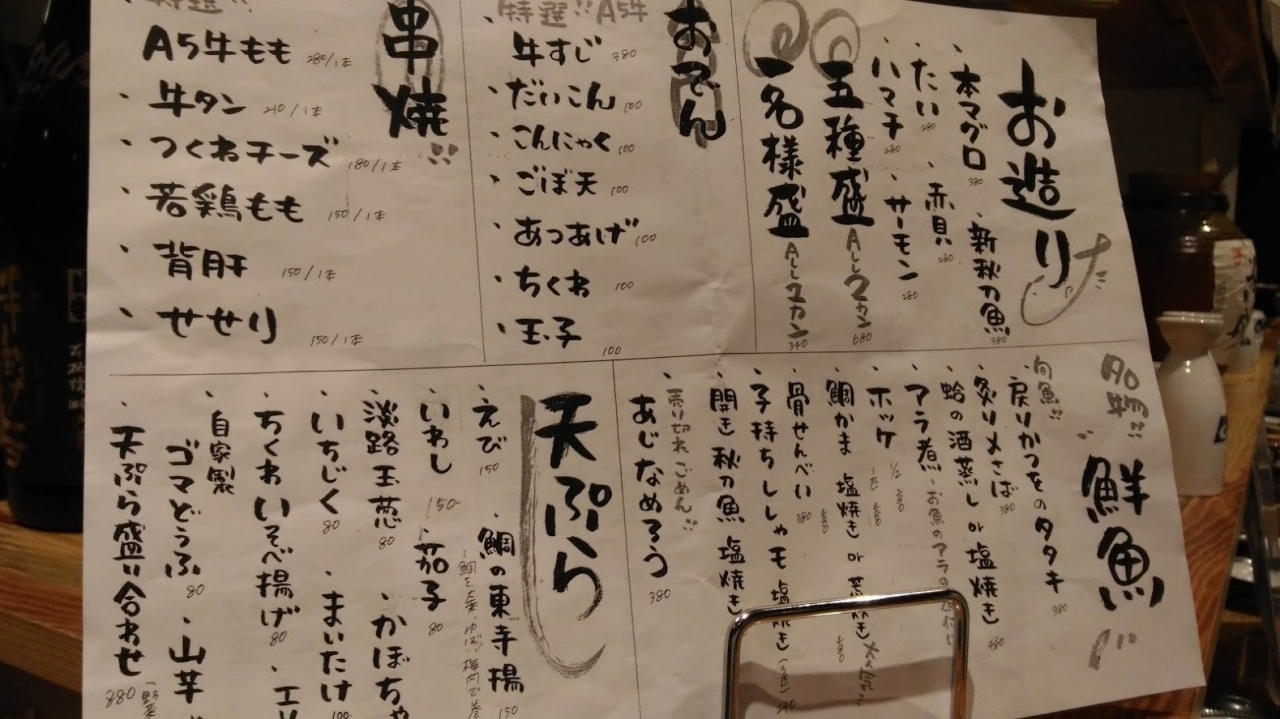 お造り
・本マグロ 380
・新秋刀魚 380
・たい 280
・赤貝 280
・ハマチ 280
・サーモン 280
五種盛 ALL2カン 680
一名様盛 ALL1カン 340
おでん
特選!! A5牛
・牛すじ 380
・だいこん 100
・こんにゃく 100
・ごぼ天 100
・あつあげ 100
・ちくわ 100
・玉子 100
串焼!!
特選!!
A5牛もも 280/1本
・牛タン 210/1本
・つくねチーズ 180/1本
・若鶏もも 150/1本
・背肝 150/1本
・せせり 150/1本
名物!! 鮮魚
旬魚!!
・戻りかつをのタタキ 380
・炙り〆さば 380
・蛤の酒蒸し or 塩焼き 480
・アラ煮 -お魚のアラの
・ホッケ 1/2
・鯛かま 塩焼き or
・骨せんべい 380
・子持ちししゃも
・開き秋刀魚 塩焼き
売り切れごめん!!
・あじなめろう 380
天ぷら
・えび 150
・鯛の東寺揚 150
・いわし 150
・茄子 80
・淡路玉葱 80
・かぼちゃ
・いちじく 80
・まいたけ 100
・ちくわいそべ揚げ 80
・自家製ゴマどうふ 80
・山芋
・天ぷら盛り合わせ 880